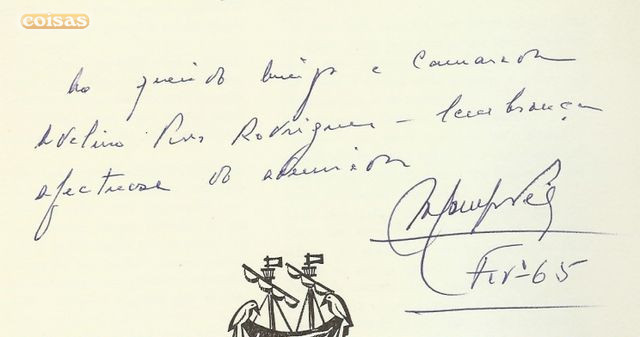 coisas
Ao querido amigo e camarada
Avelino Pires Rodrigues - lembrança
afectuosa do admirador
Fevº-65